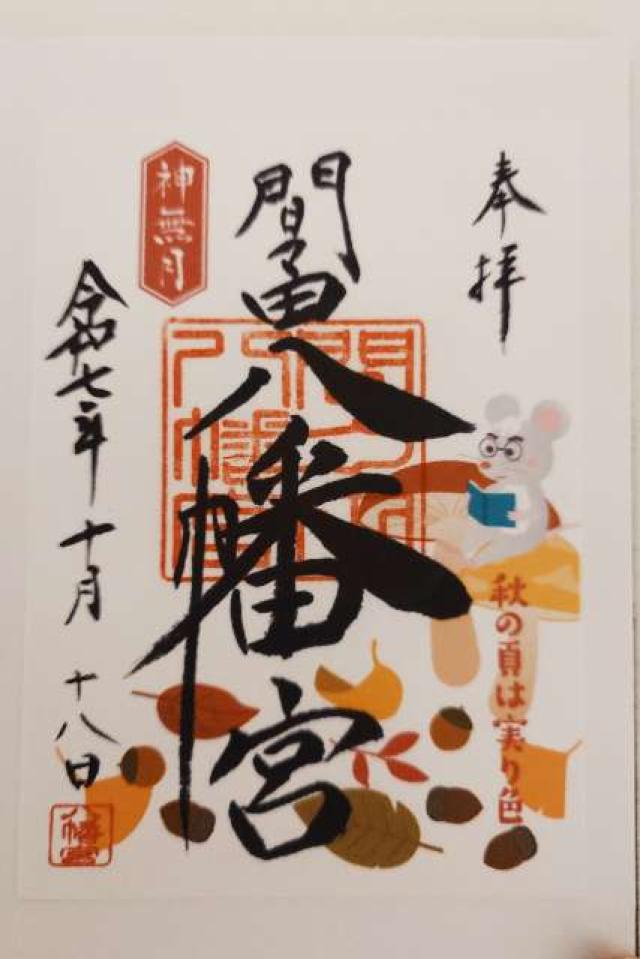 奉拝
秋の頁は実り色
間々田八幡宮
間々田八幡宮
神無月
令和七年十月十八日
八幡宮